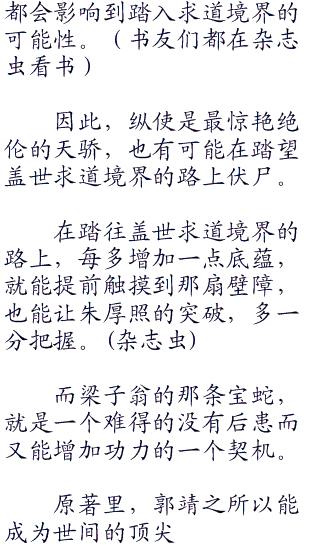 都会影响到踏入求道境界的
可能性。（书友们都在杂志
虫看书）
因此，纵使是最惊艳绝
伦的天骄，也有可能在踏望
盖世求道境界的路上伏尸。
在踏往盖世求道境界的
路上，每多增加一点底蕴，
就能提前触摸到那扇壁障，
也能让朱厚照的突破，多一
分把握。(杂志虫)
而梁子翁的那条宝蛇，
就是一个难得的没有后患而
又能增加功力的一个契机。
原著里，郭靖之所以能
成为世间的顶尖